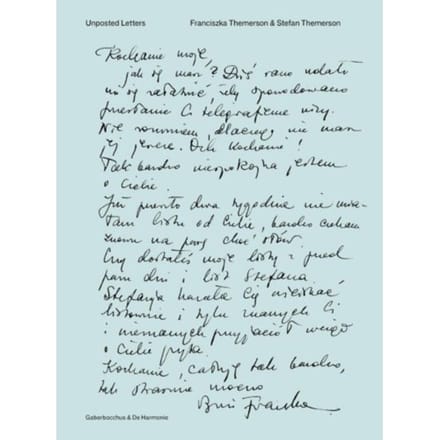 Unposted Letters Franciszka Themerson & Stefan Themerson
Kochanie moje,
jak się masz? Dziś rano udało
mi się załatwić żeby spowodowano
przesłanie Ci telegraficzne wizy.
Nie rozumiem, dlaczego nie masz
jej jeszcze. Och kochanie!
Tak bardzo niespokojna jestem
o Ciebie.
Już prawie dwa tygodnie nie mia-
łam listu od Ciebie, bardzo czekam
znowu na parę choć słów.
Czy dostałeś moje listy z przed
paru dni i list Stefana
Stefania kazała Cię uściskać
listownie i tylu znanych Ci
i nieznanych przyjaciół wciąż
o Ciebie pyta.
Kochanie, całuję tak bardzo,
tak strasznie mocno
Franka
Gaberbocchus & De Harmonie